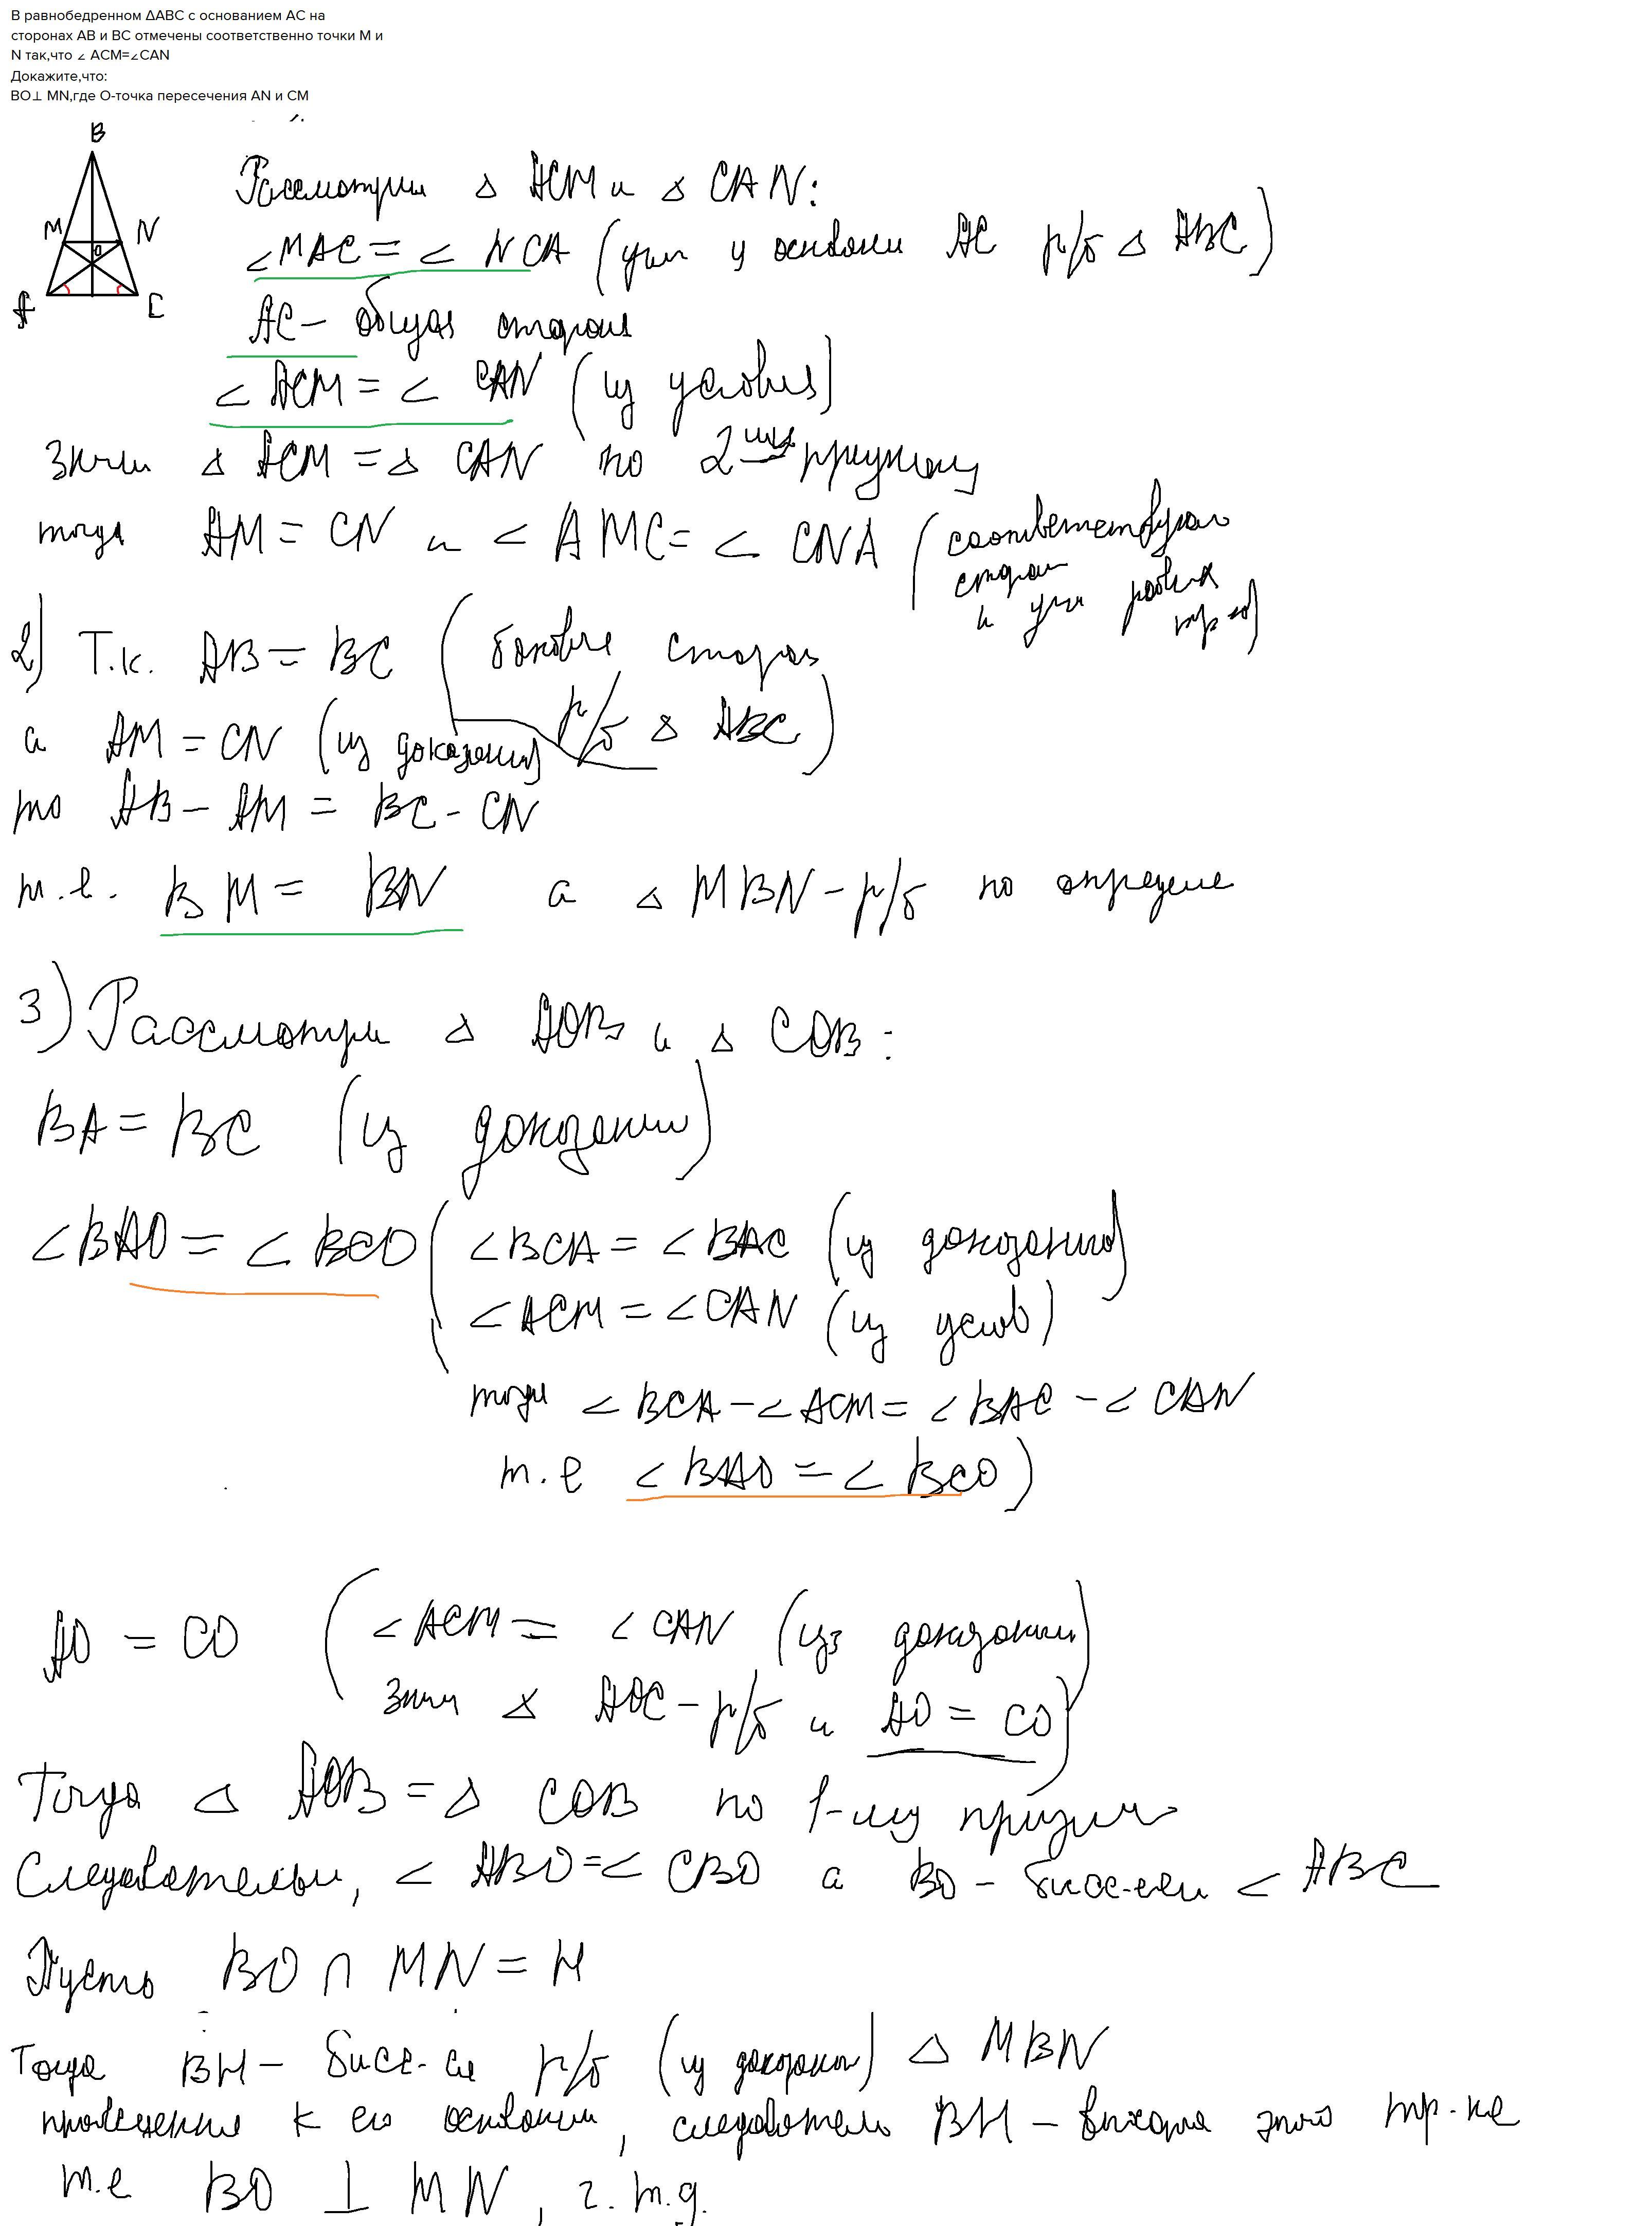 В равнобедренном ΔABC с основанием AC на
сторонах AB и BC отмечены соответственно точки M и
N так,что ∠ ACM=∠CAN
Докажите,что:
BO⊥ MN,где O-точка пересечения AN и CM
B
M N
O
A C
Рассмотрим Δ ACM и Δ CAN:
∠MAC = ∠ NCA (углы у основани AC р/б Δ ABC)
AC – общая сторона
∠ ACM = ∠ CAN (из условия)
Значи Δ ACM = Δ CAN по 2
тогда AM = CN и ∠ AMC = ∠ CNA (соответствующ
сторон
и углы равных
тр-в)
2) Т.к. AB = BC (боковые сторон
р/б Δ ABC)
а AM = CN (из доказания)
то AB – AM = BC - CN
т.е. BM = BN а Δ MBN – р/б по определе
3) Рассмотри Δ AOB и Δ COB :
BA = BC (из доказании)
∠BAO = ∠ BCO ( ∠BCA = ∠BAC (из доказанного)
∠ACM = ∠CAN (из услов)
тогда ∠ BCA – ∠ ACM = ∠ BAC - ∠ CAN
т.е ∠ BAO = ∠ BCO )
AO = CO ( ∠ ACM = ∠ CAN (из доказании)
Знач Δ AOC – р/б и AO = CO )
Тогда Δ AOB = Δ COB по 1-му признак
Следовательн, ∠ ABO = ∠ CBO а BO – бисс-сы ∠ ABC
Пусть BO ∩ MN = H
Тогда BH – бисс-са р/б (из доказан) Δ MBN
проведення к его основани, следователь BH – высота этого тр-ка
т.е BO ⊥ MN, ч.т.д.